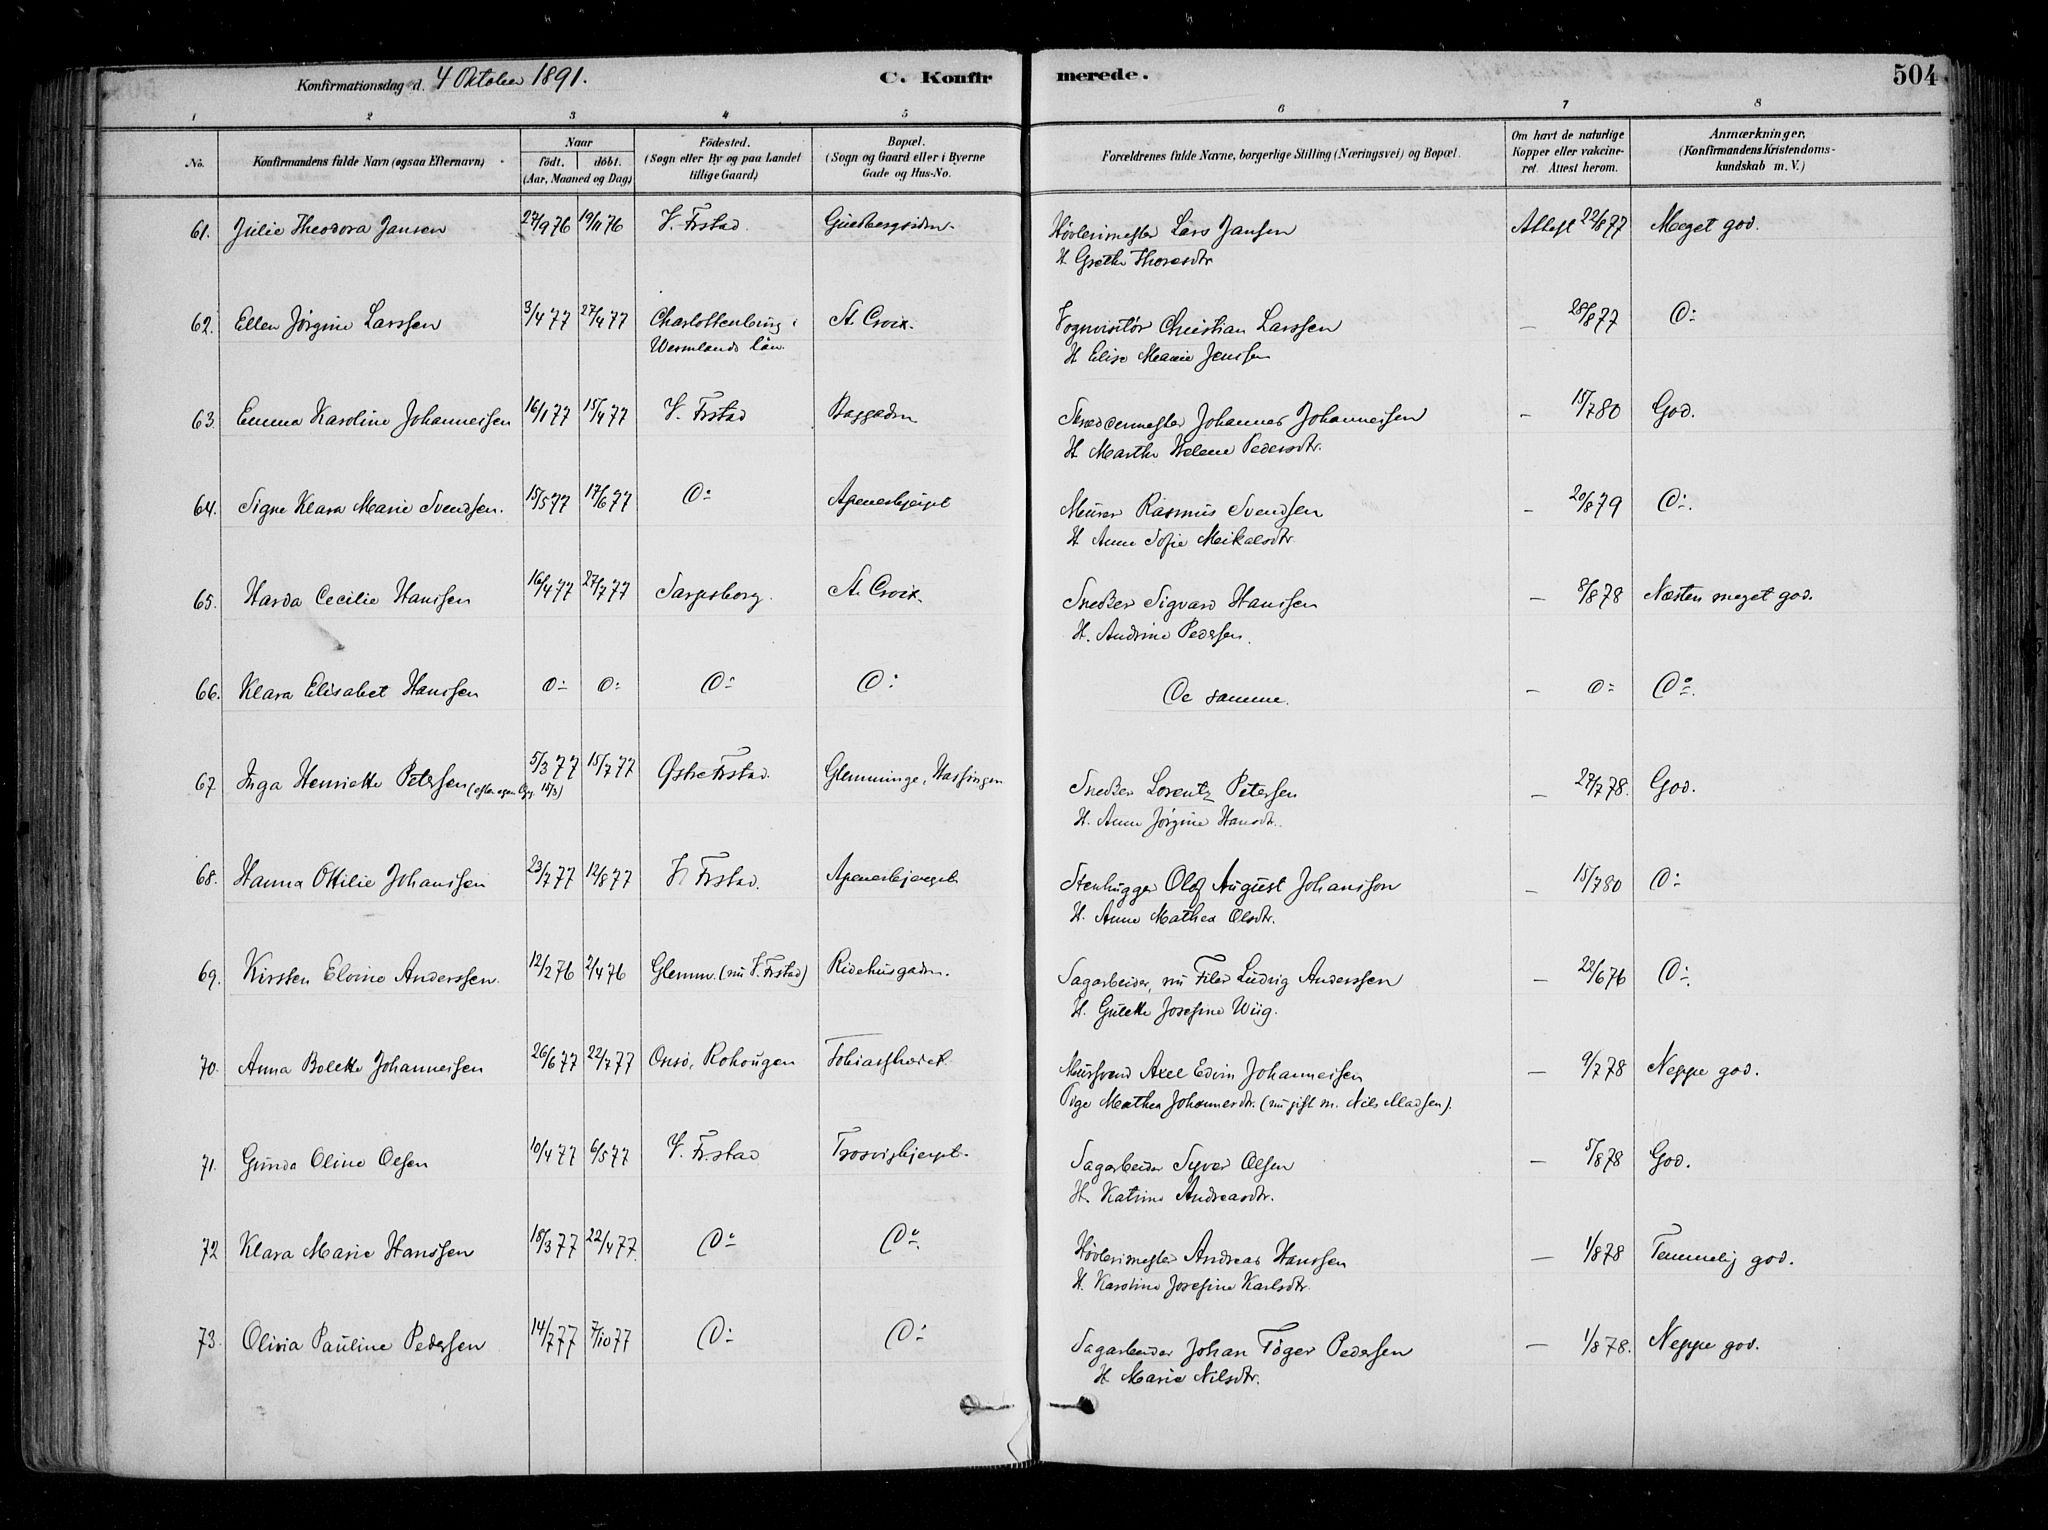 Konfirmationsdag d. 4 Oktober 1891.
C. Konfir merede.
504
1 2 3 4 5 6 7 8
No. Konfirmandens fulde Navn (ogsaa Efternavn) Naar födt. döbt. (Aar, Maaned og Dag) Födested. (Sogn eller By og paa Landet tillige Gaard) Bopæl. (Sogn og Gaard eller i Byerne Gade og Hus-No. Forældrenes fulde Navne, borgerlige Stilling (Næringsvei) og Bopæl. Om havt de naturlige Kopper eller vakcineret. Attest herom. Anmærkninger, (Konfirmandens Kristendomskundskab m. V.)
61. Julie Theodora Jansen 27/9 76 19/11 76 V. Frstad. Høvlerimester Lars Jansen Attest 22/8 77 Meget god.
H. Grethe Thoresdtr
62. Ellen Jørgine Larssen 3/4 77 27/4 77 Charlottenberg i St. Croix. Vognvisitør Christian Larssen — 28/8 77 Do
Wermlands Län. H. Elise Marie Jenssen
63. Emma Karoline Johannessen 16/1 77 15/4 77 V. Frstad Baggaden Skræddermester Johannes Johannessen — 15/7 80 God.
H. Marthe Helene Pedersdtr.
64. Signe Klara Marie Svendsen. 15/5 77 17/6 77 Do Apenesbjerget Murer Rasmus Svendsen — 20/8 79 Do.
H. Anne Sofie Meikalsdtr.
65. Harda Cecilie Hanssen 16/4 77 27/7 77 Sarpsborg. St. Croix. Snedker Sigvard Hanssen — 8/8 78 Næsten meget god.
H. Andrine Pedersen.
66. Klara Elisabet Hanssen do do Do Do De samme. — do Do
67. Inga Henriette Petersen (efter egen Opg. 15/3) 5/3 77 15/7 77 Østre Frstad. Glemminge, Hassingen Snedker Lorentz Petersen — 27/7 78. God.
H. Anne Jørgine Hansdtr.
68. Hanna Ottilie Johanssen 23/7 77 12/8 77 V. Frstad. Apenesbjerget Stenhugger Olof August Johansson — 15/7 80 Do
H. Anne Mathea Olsdtr.
69. Kirsten Elvine Anderssen. 12/2 76 2/4 76 Glemm. (nu V. Frstad) Ridehusgaden. Sagarbeider, nu Filer Ludvig Anderssen — 22/6 76 Do.
H. Gulette Josefine Wiig.
70. Anna Bolette Johannessen 26/6 77 22/7 77 Onsö, Rohougen Møllsvend Axel Edvin Johannessen — 9/7 78 Neppe god.
Pige Mathea Johannesdtr. (nu gift m. Nils Madsen).
71. Gunda Oline Olsen 10/4 77 6/5 77 V. Frstad Trosvigbjerget. Sagarbeider Syver Olsen — 5/8 78 God.
H. Katrine Andreasdtr.
72 Klara Marie Hanssen 18/3 77 22/4 77. Do Do. Høvlerimester Andreas Hanssen — 1/8 78 Temmelig god.
H. Karoline Josefine Karlsdtr.
73. Olivia Pauline Pedersen 14/7 77 7/10 77 Do Do Sagarbeider Johan Töger Pedersen — 1/8 78. Neppe god.
H. Marie Nilsdtr.